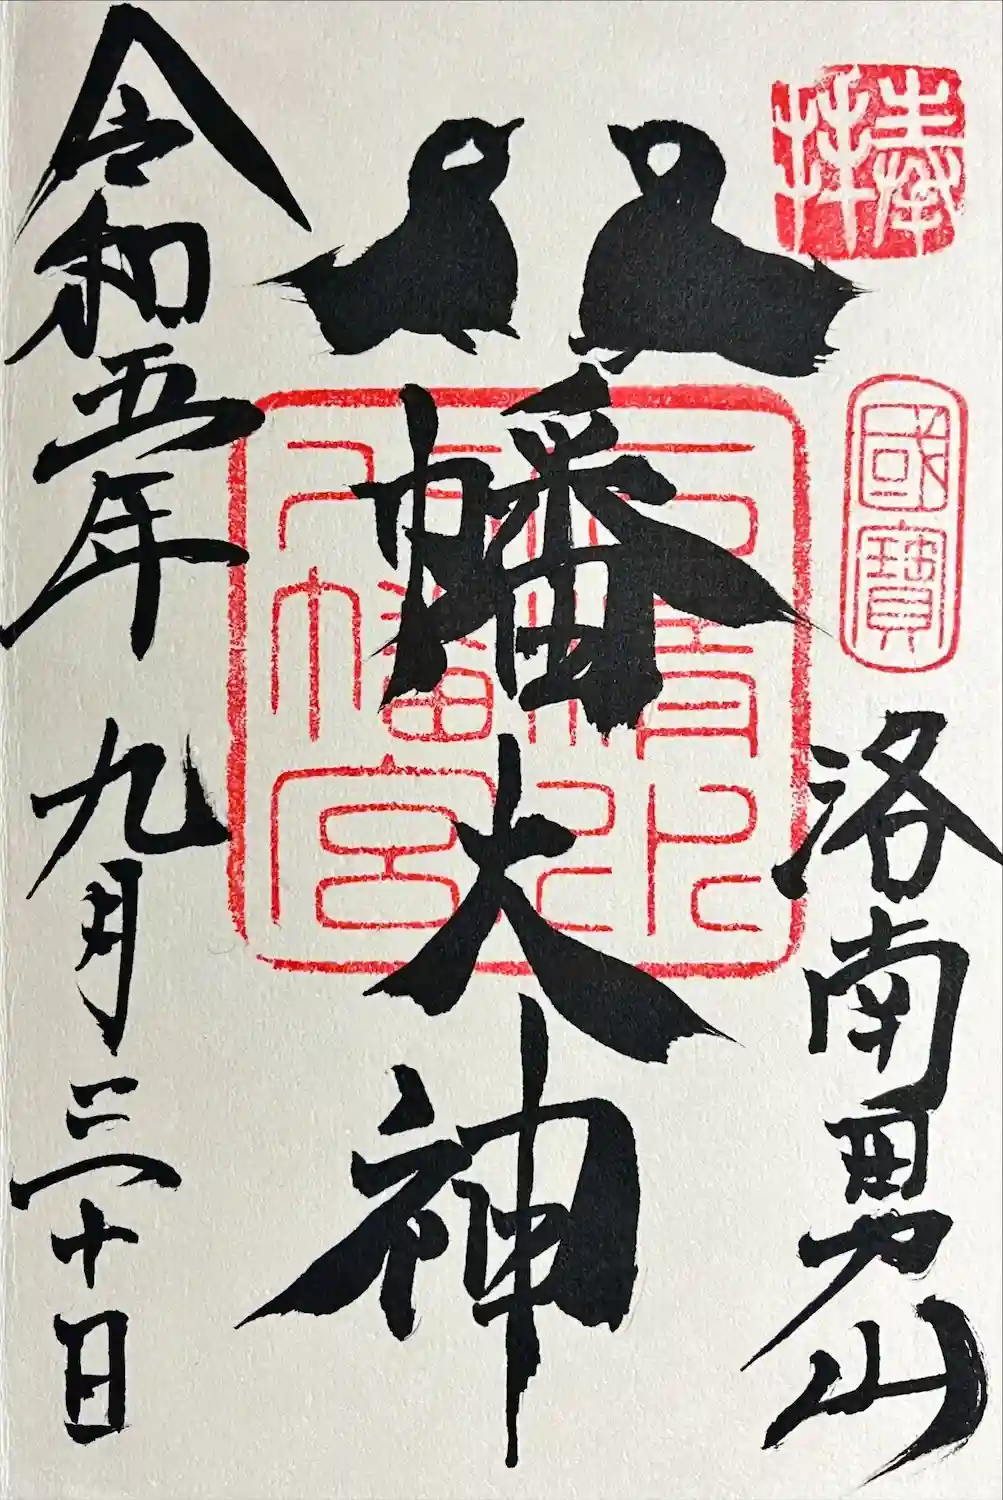 奉拝
國寶
洛南男山
八幡大神
石清水八幡宮
令和五年 九月三十日